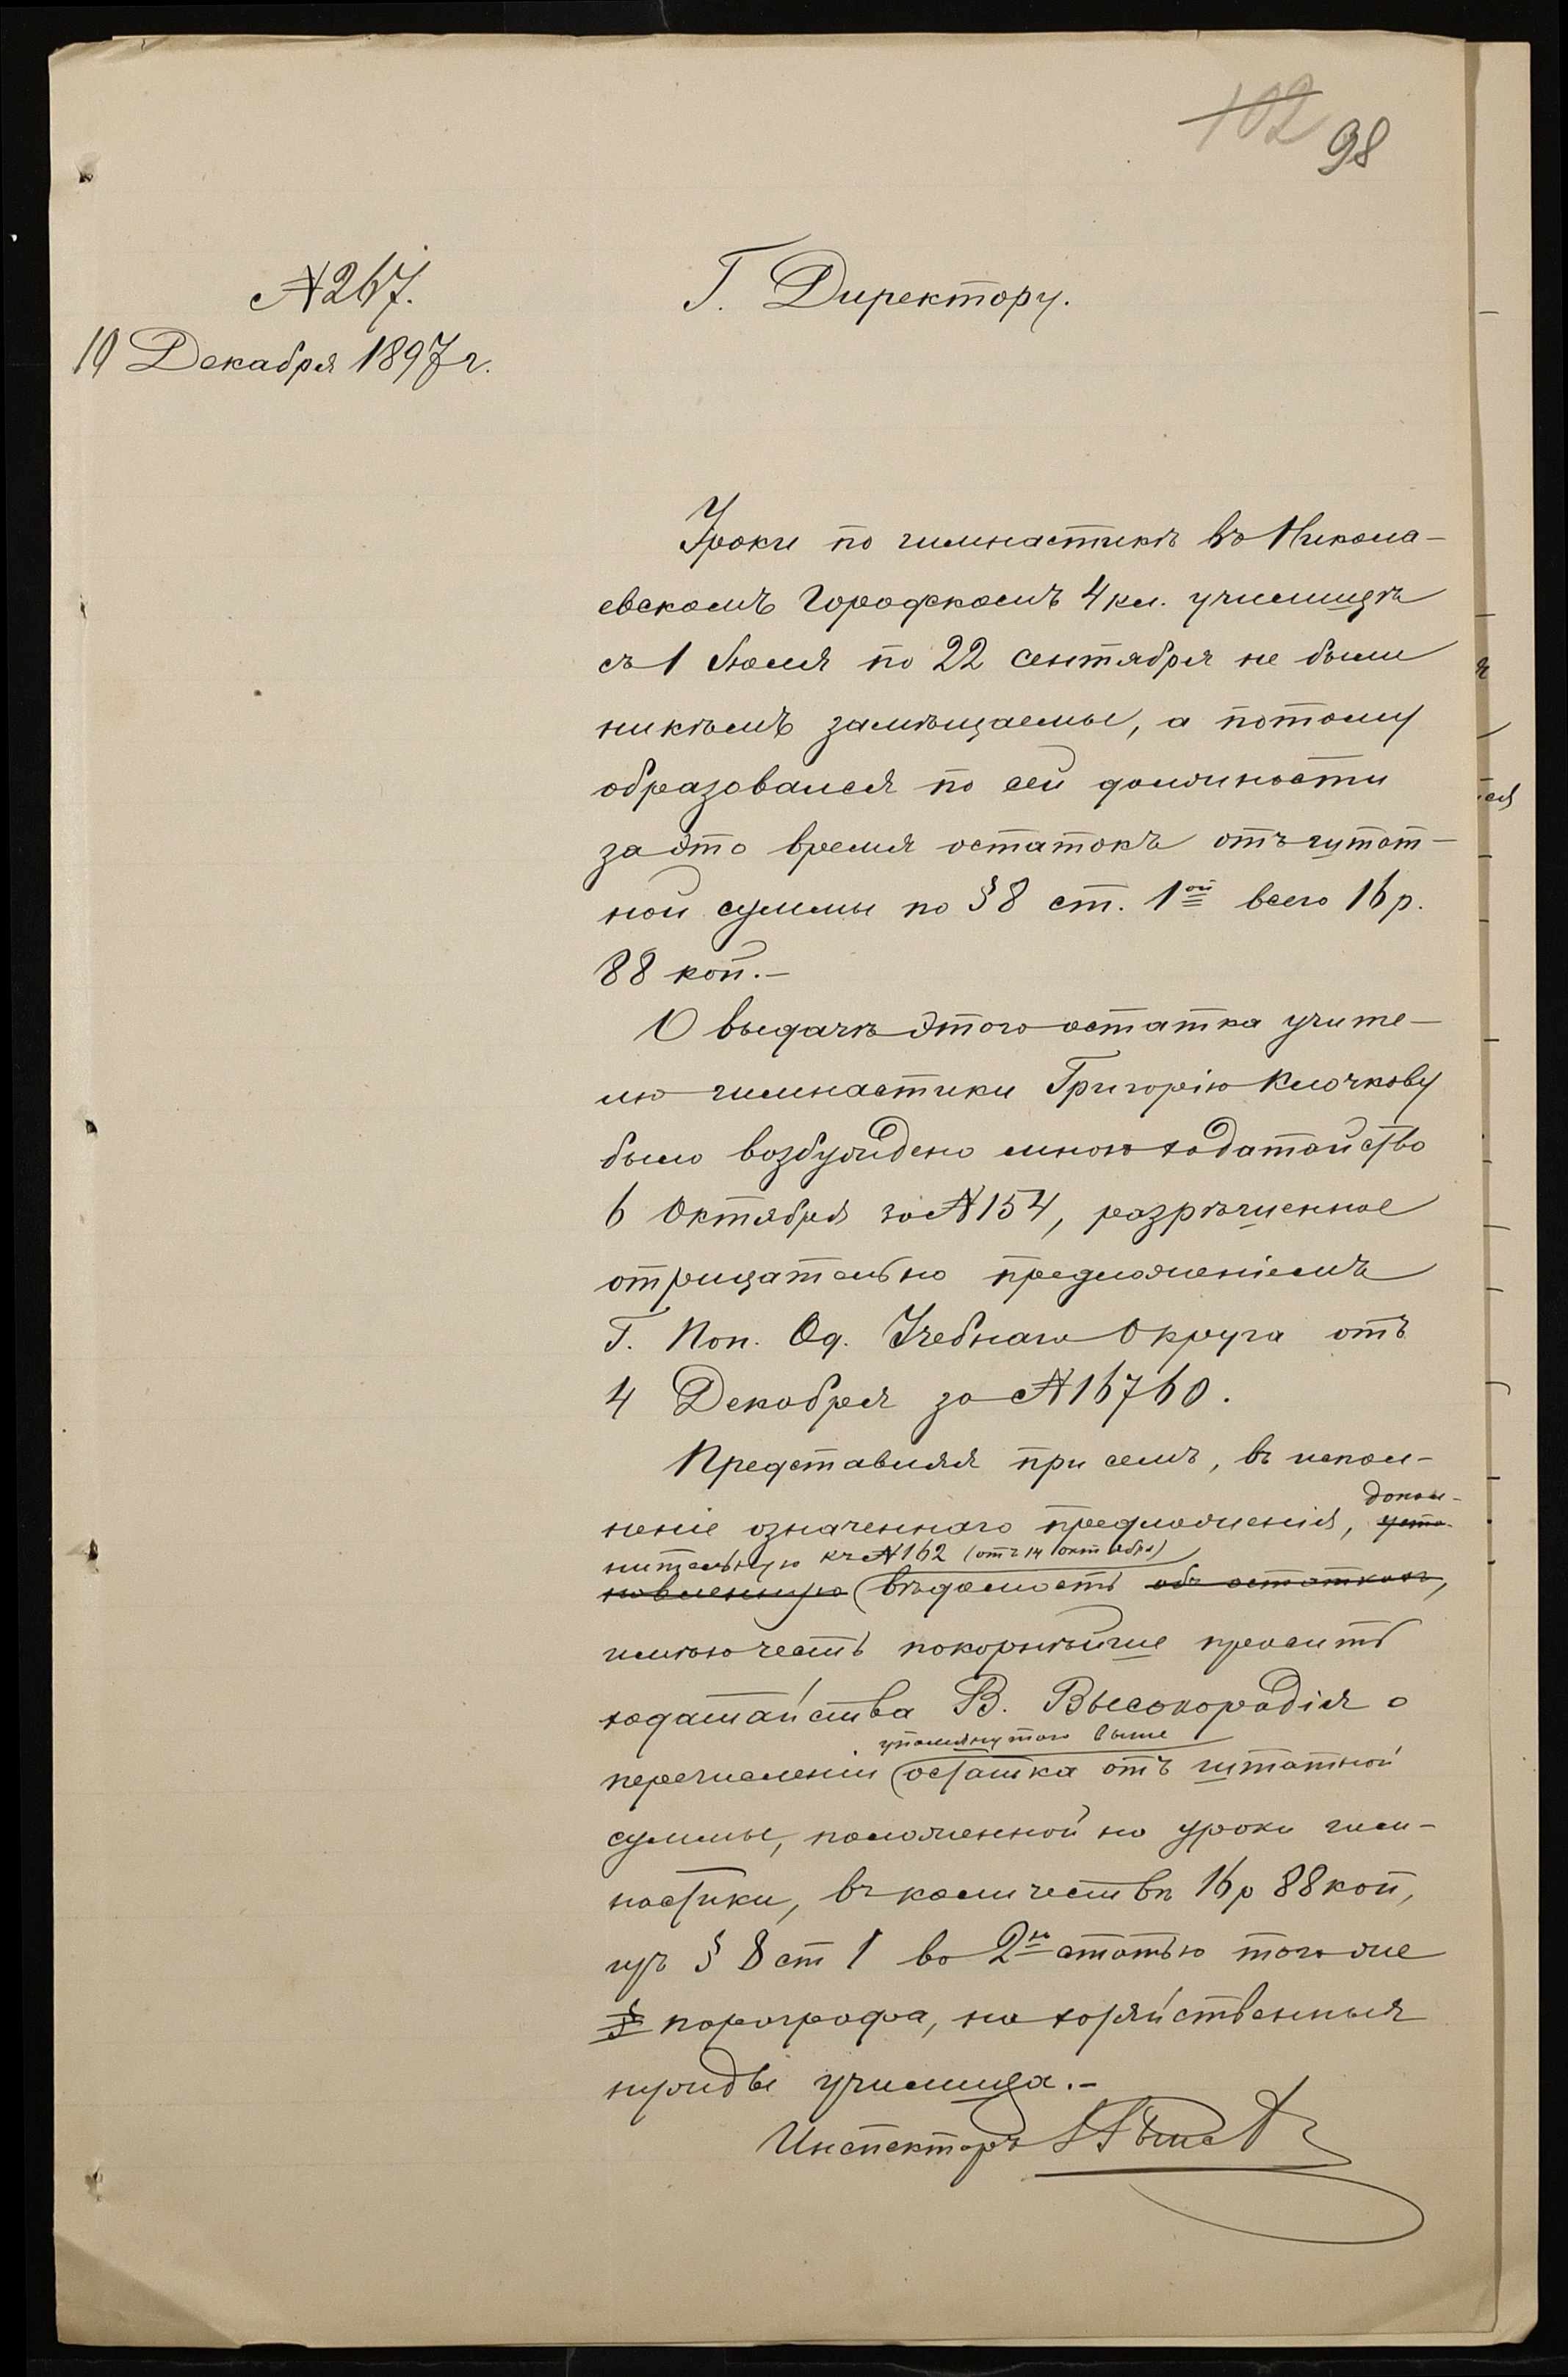 102 98
№ 267.
10 Декабря 1897 г.
Г. Директору.
Уроки по гимнастикѣ въ Никола-
евскомъ Городскомъ 4 кл. училищѣ
съ 1 Июля по 22 сентября не были
никѣмъ замѣщаемы, а потому
образовался по сей должности
за это время остатокъ отъ штат-
ной суммы по § 8 ст. 1ой всего 16 р.
88 коп.-
О выдачѣ этого остатка учите-
лю гимнастики Григорію Клочкову
было возбуждено мною ходатайство
6 Октября за № 154, разрѣшенное
отрицательно предложеніемъ
Г. Поп. Од. Учебнаго Округа отъ
4 Декабря за № 16760.
Представляя при семъ, въ испол-
неніе означеннаго предложенія, уста- допол-
нительную къ № 162 (отъ 14 октября)
новленную вѣдомость объ остаткахъ,
имѣю честь покорнѣйше просить
ходатайства В. Высокородія о
упомянутаго выше
перечисленіи остатка отъ штатной
суммы, положенной на уроки гим-
настики, въ количествѣ 16 р 88 коп,
изъ § 8 ст 1 во 2ю статью того же
§ параграфа, на хозяйственныя
нужды училища.-
Инспекторъ